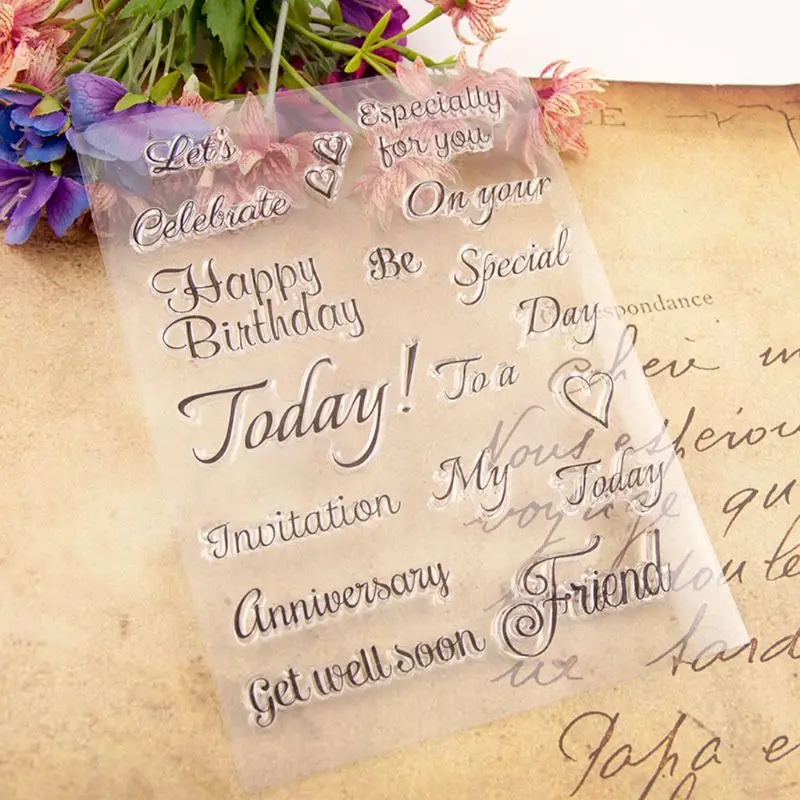 Let's
Especially
for you
Celebrate
On your
Happy
Birthday
Be
Special
Day
Today!
To a
Invitation
My
Today
Anniversary
Friend
Get well soon
Nous espériou
Papa e